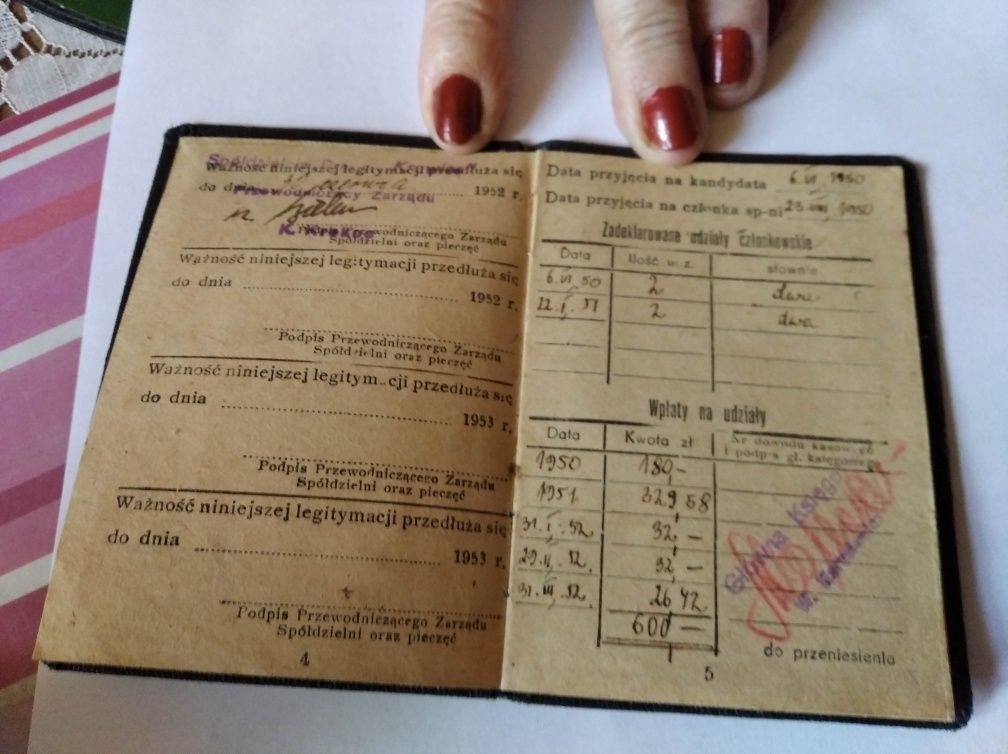 Ważność niniejszej legitymacji przedłuża się
do dnia czerwca 1952 r.
Przewodniczący Zarządu
K. Krekos
Podpis Przewodniczącego Zarządu
Spółdzielni oraz pieczęć
Ważność niniejszej legitymacji przedłuża się
do dnia 1952 r.
Podpis Przewodniczącego Zarządu
Spółdzielni oraz pieczęć
Ważność niniejszej legitymacji przedłuża się
do dnia 1953 r.
Podpis Przewodniczącego Zarządu
Spółdzielni oraz pieczęć
Ważność niniejszej legitymacji przedłuża się
do dnia 1953 r.
Podpis Przewodniczącego Zarządu
Spółdzielni oraz pieczęć
4
Data przyjęcia na kandydata 6. VI 1950
Data przyjęcia na członka sp-ni 23 VIII 1950
Zadeklarowane udziały członkowskie
Data Ilość u. z. słownie
6. VI 50 2 dwa
22. I. 51 2 dwa
Wpłaty na udziały
Data Kwota zł Nr dowodu kasowego
i podpis gł. księgowego
1950 180,-
1951. 329 58
31. I. 52. 32 -
29. II. 52. 32 -
31. III. 52. 26 42
600 -
Główna Księgowa
do przeniesienia
5